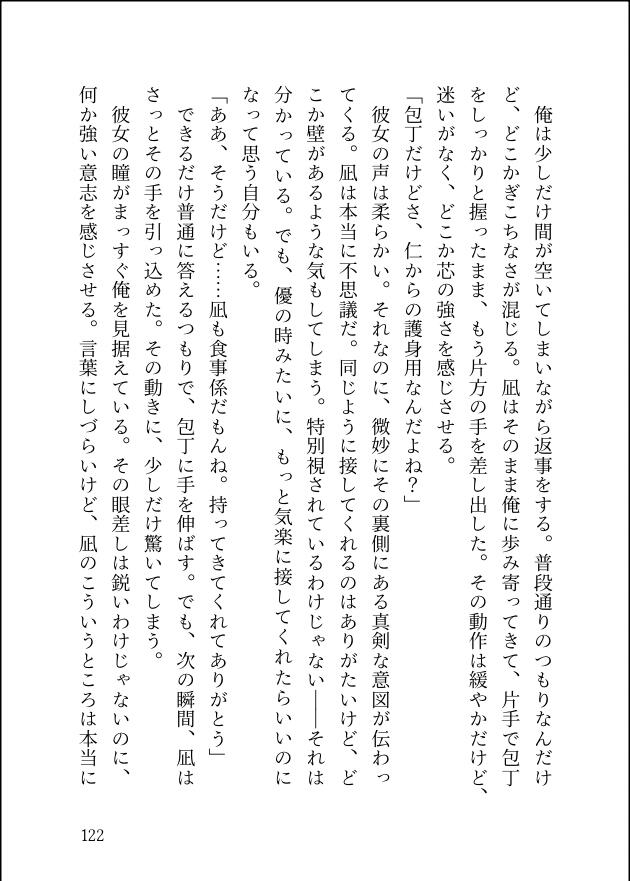 俺は少しだけ間が空いてしまいながら返事をする。普段通りのつもりなんだけ
ど、どこかぎこちなさが混じる。凪はそのまま俺に歩み寄ってきて、片手で包丁
をしっかりと握ったまま、もう片方の手を差し出した。その動作は緩やかだけど、
迷いがなく、どこか芯の強さを感じさせる。
「包丁だけどさ、仁からの護身用なんだよね？」
　彼女の声は柔らかい。それなのに、微妙にその裏側にある真剣な意図が伝わっ
てくる。凪は本当に不思議だ。同じように接してくれるのはありがたいけど、ど
こか壁があるような気もしてしまう。特別視されているわけじゃない――それは
分かっている。でも、優の時みたいに、もっと気楽に接してくれたらいいのに
なって思う自分もいる。
「ああ、そうだけど……凪も食事係だもんね。持ってきてくれてありがとう」
　できるだけ普通に答えるつもりで、包丁に手を伸ばす。でも、次の瞬間、凪は
さっとその手を引っ込めた。その動きに、少しだけ驚いてしまう。
　彼女の瞳がまっすぐ俺を見据えている。その眼差しは鋭いわけじゃないのに、
何か強い意志を感じさせる。言葉にしづらいけど、凪のこういうところは本当に
122